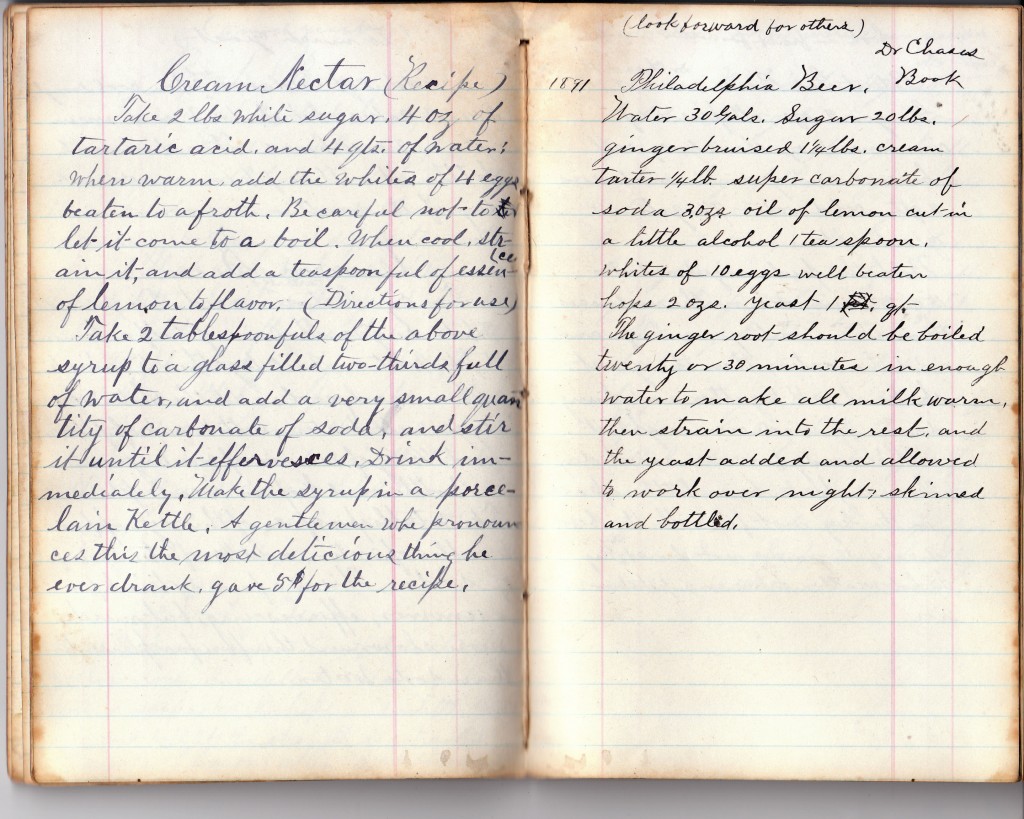 Cream Nectar (Recipe)
Take 2 lbs white sugar. 4 oz of
tartaric acid. and 4 qts. of water;
when warm, add the whites of 4 eggs
beaten to a froth. Be careful not to
let it come to a boil. When cool, str-
ain it, and add a teaspoonful of essen-
ce
of lemon to flavor. (Directions for use)
Take 2 tablespoonfuls of the above
syrup to a glass filled two-thirds full
of water, and add a very small quan
tity of carbonate of soda, and stir
it until it effervesces. Drink im-
mediately. Make the syrup in a porce-
lain Kettle. A gentlemen who pronoun
ces this the most delicious thing he
ever drank, gave 5$ for the recipe.
(look forward for others)
Dr Chases
Book
1891 Philadelphia Beer.
Water 30 Gals. Sugar 20 lbs.
ginger bruised 1¼ lbs. cream
tarter ¼ lb. super carbonate of
soda 3 ozs oil of lemon cut in
a little alcohol 1 tea spoon.
whites of 10 eggs well beaten
hops 2 ozs. yeast 1 qt.
The ginger root should be boiled
twenty or 30 minutes in enough
water to make all milk warm,
then strain into the rest, and
the yeast added and allowed
to work over night, skimed
and bottled.